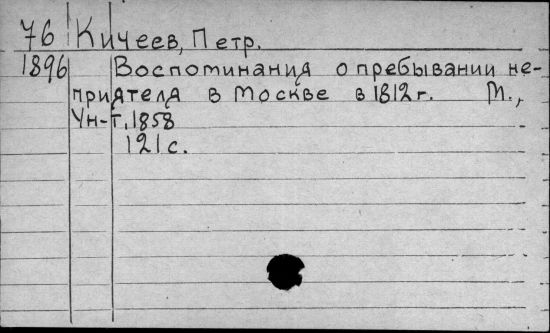 76 Кичеев, Петр.
1896 Воспоминания о пребывании не-
приятеля в Москве в 1812 г. М.,
Ун-т, 1858
121 с.